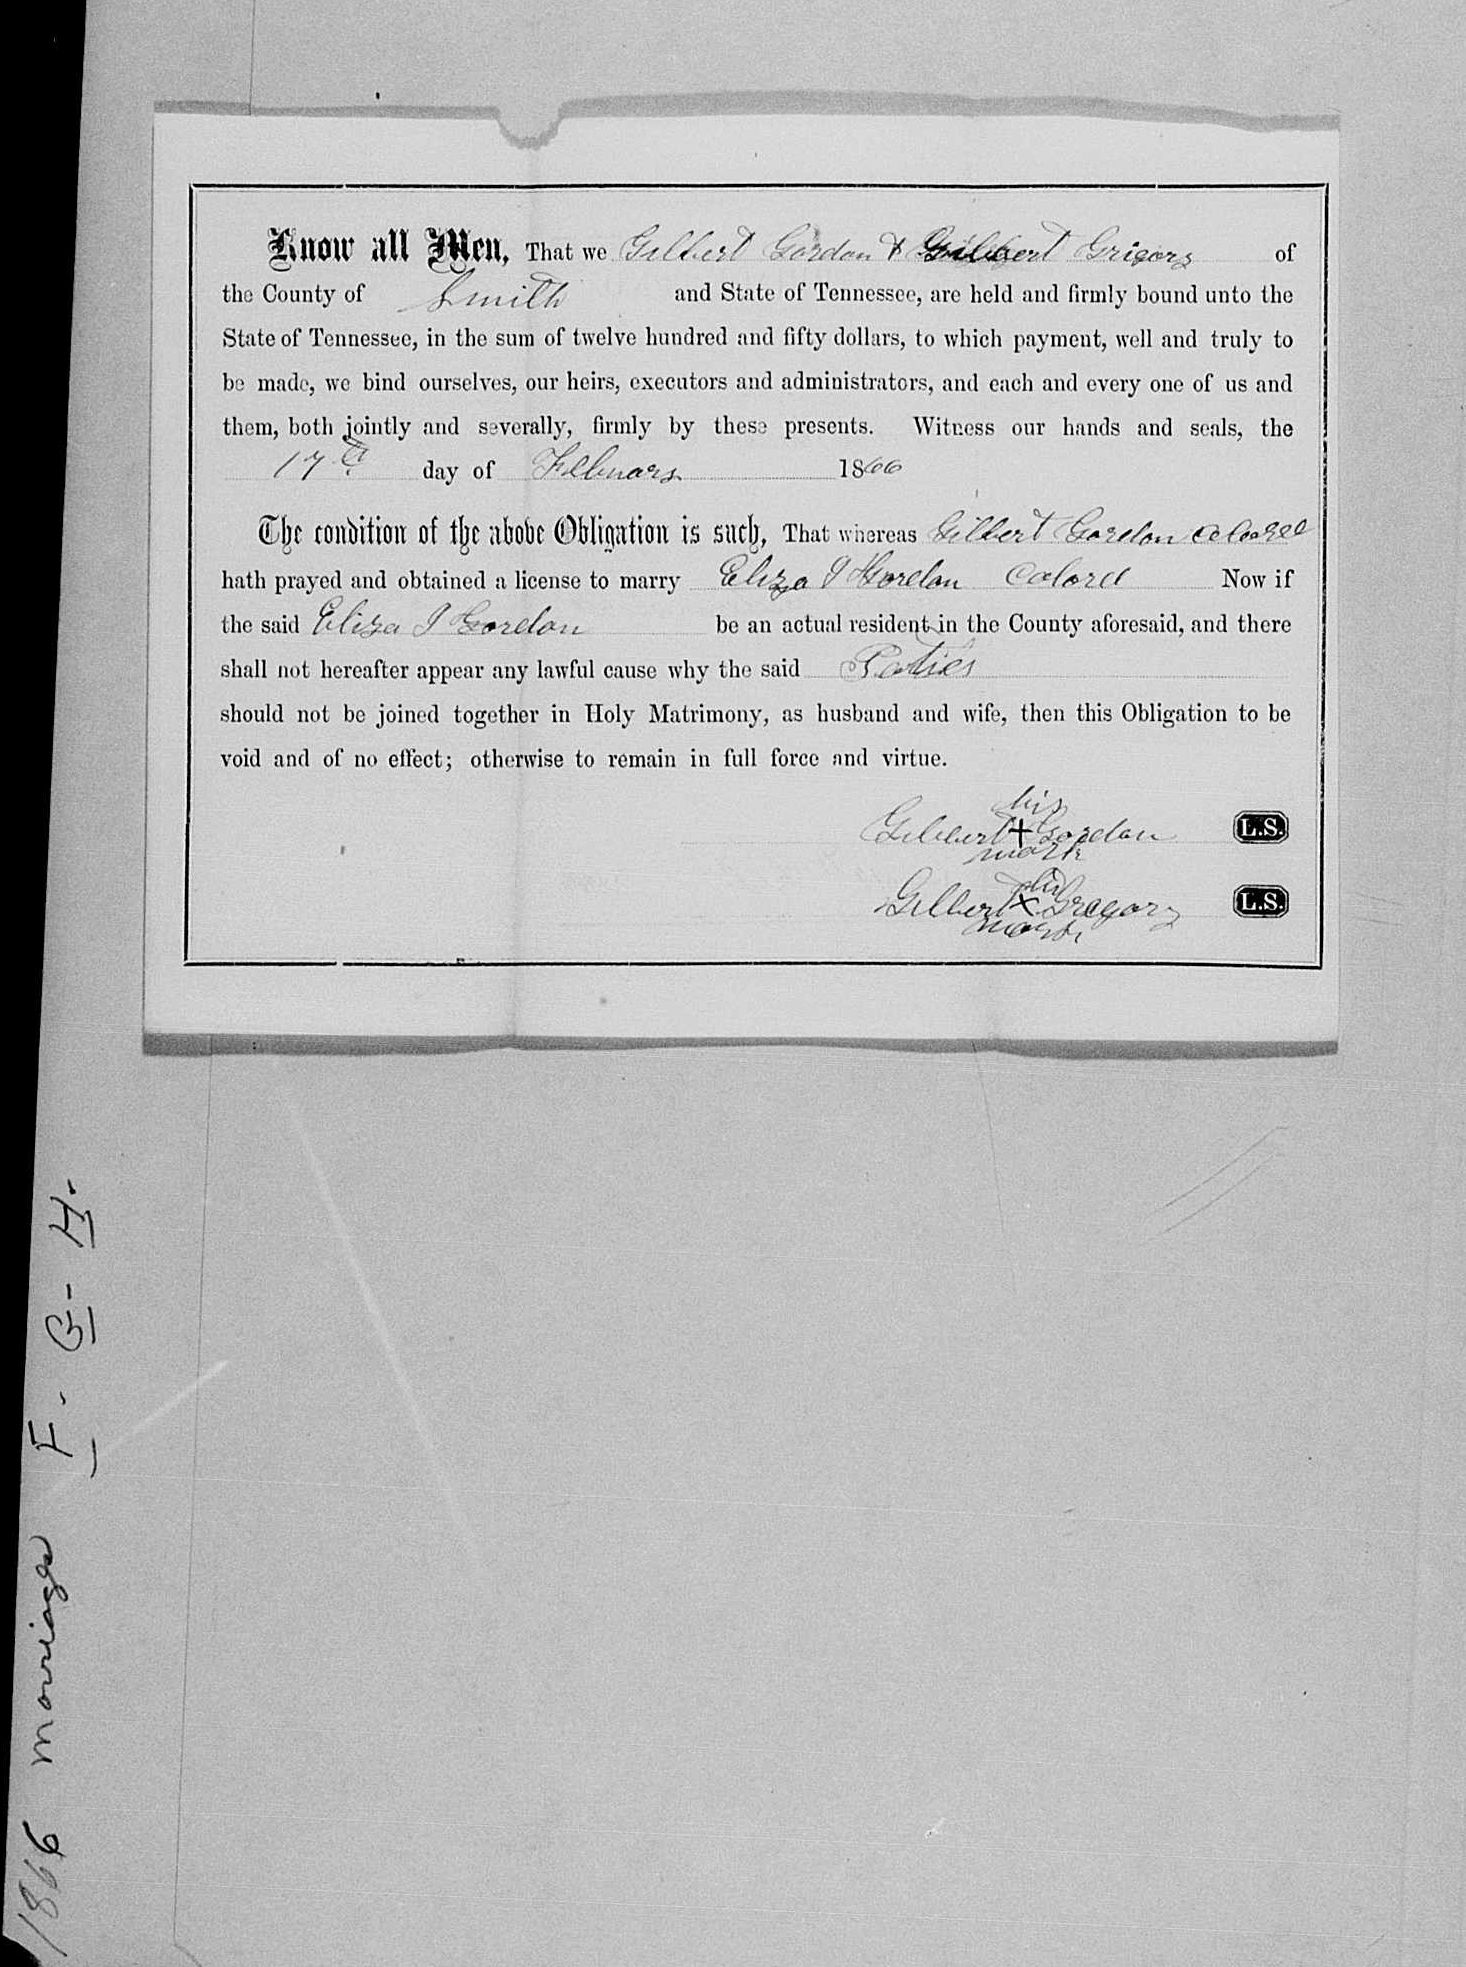 Know all Men, That we Gilbert Gordon & Gilbert Grigory of
the County of Smith and State of Tennessee, are held and firmly bound unto the
State of Tennessee, in the sum of twelve hundred and fifty dollars, to which payment, well and truly to
be made, we bind ourselves, our heirs, executors and administrators, and each and every one of us and
them, both jointly and severally, firmly by these presents. Witness our hands and seals, the
17th day of February 1866
The condition of the above Obligation is such, That whereas Gilbert Gordon
hath prayed and obtained a license to marry Eliza J Gordon Calord Now if
the said Eliza J Gordon be an actual resident in the County aforesaid, and there
shall not hereafter appear any lawful cause why the said Parties
should not be joined together in Holy Matrimony, as husband and wife, then this Obligation to be
void and of no effect; otherwise to remain in full force and virtue.
his
Gilbert + Gordon L.S.
mark
his
Gilbert x Gregory L.S.
mark
1866 marriages F. G- H.